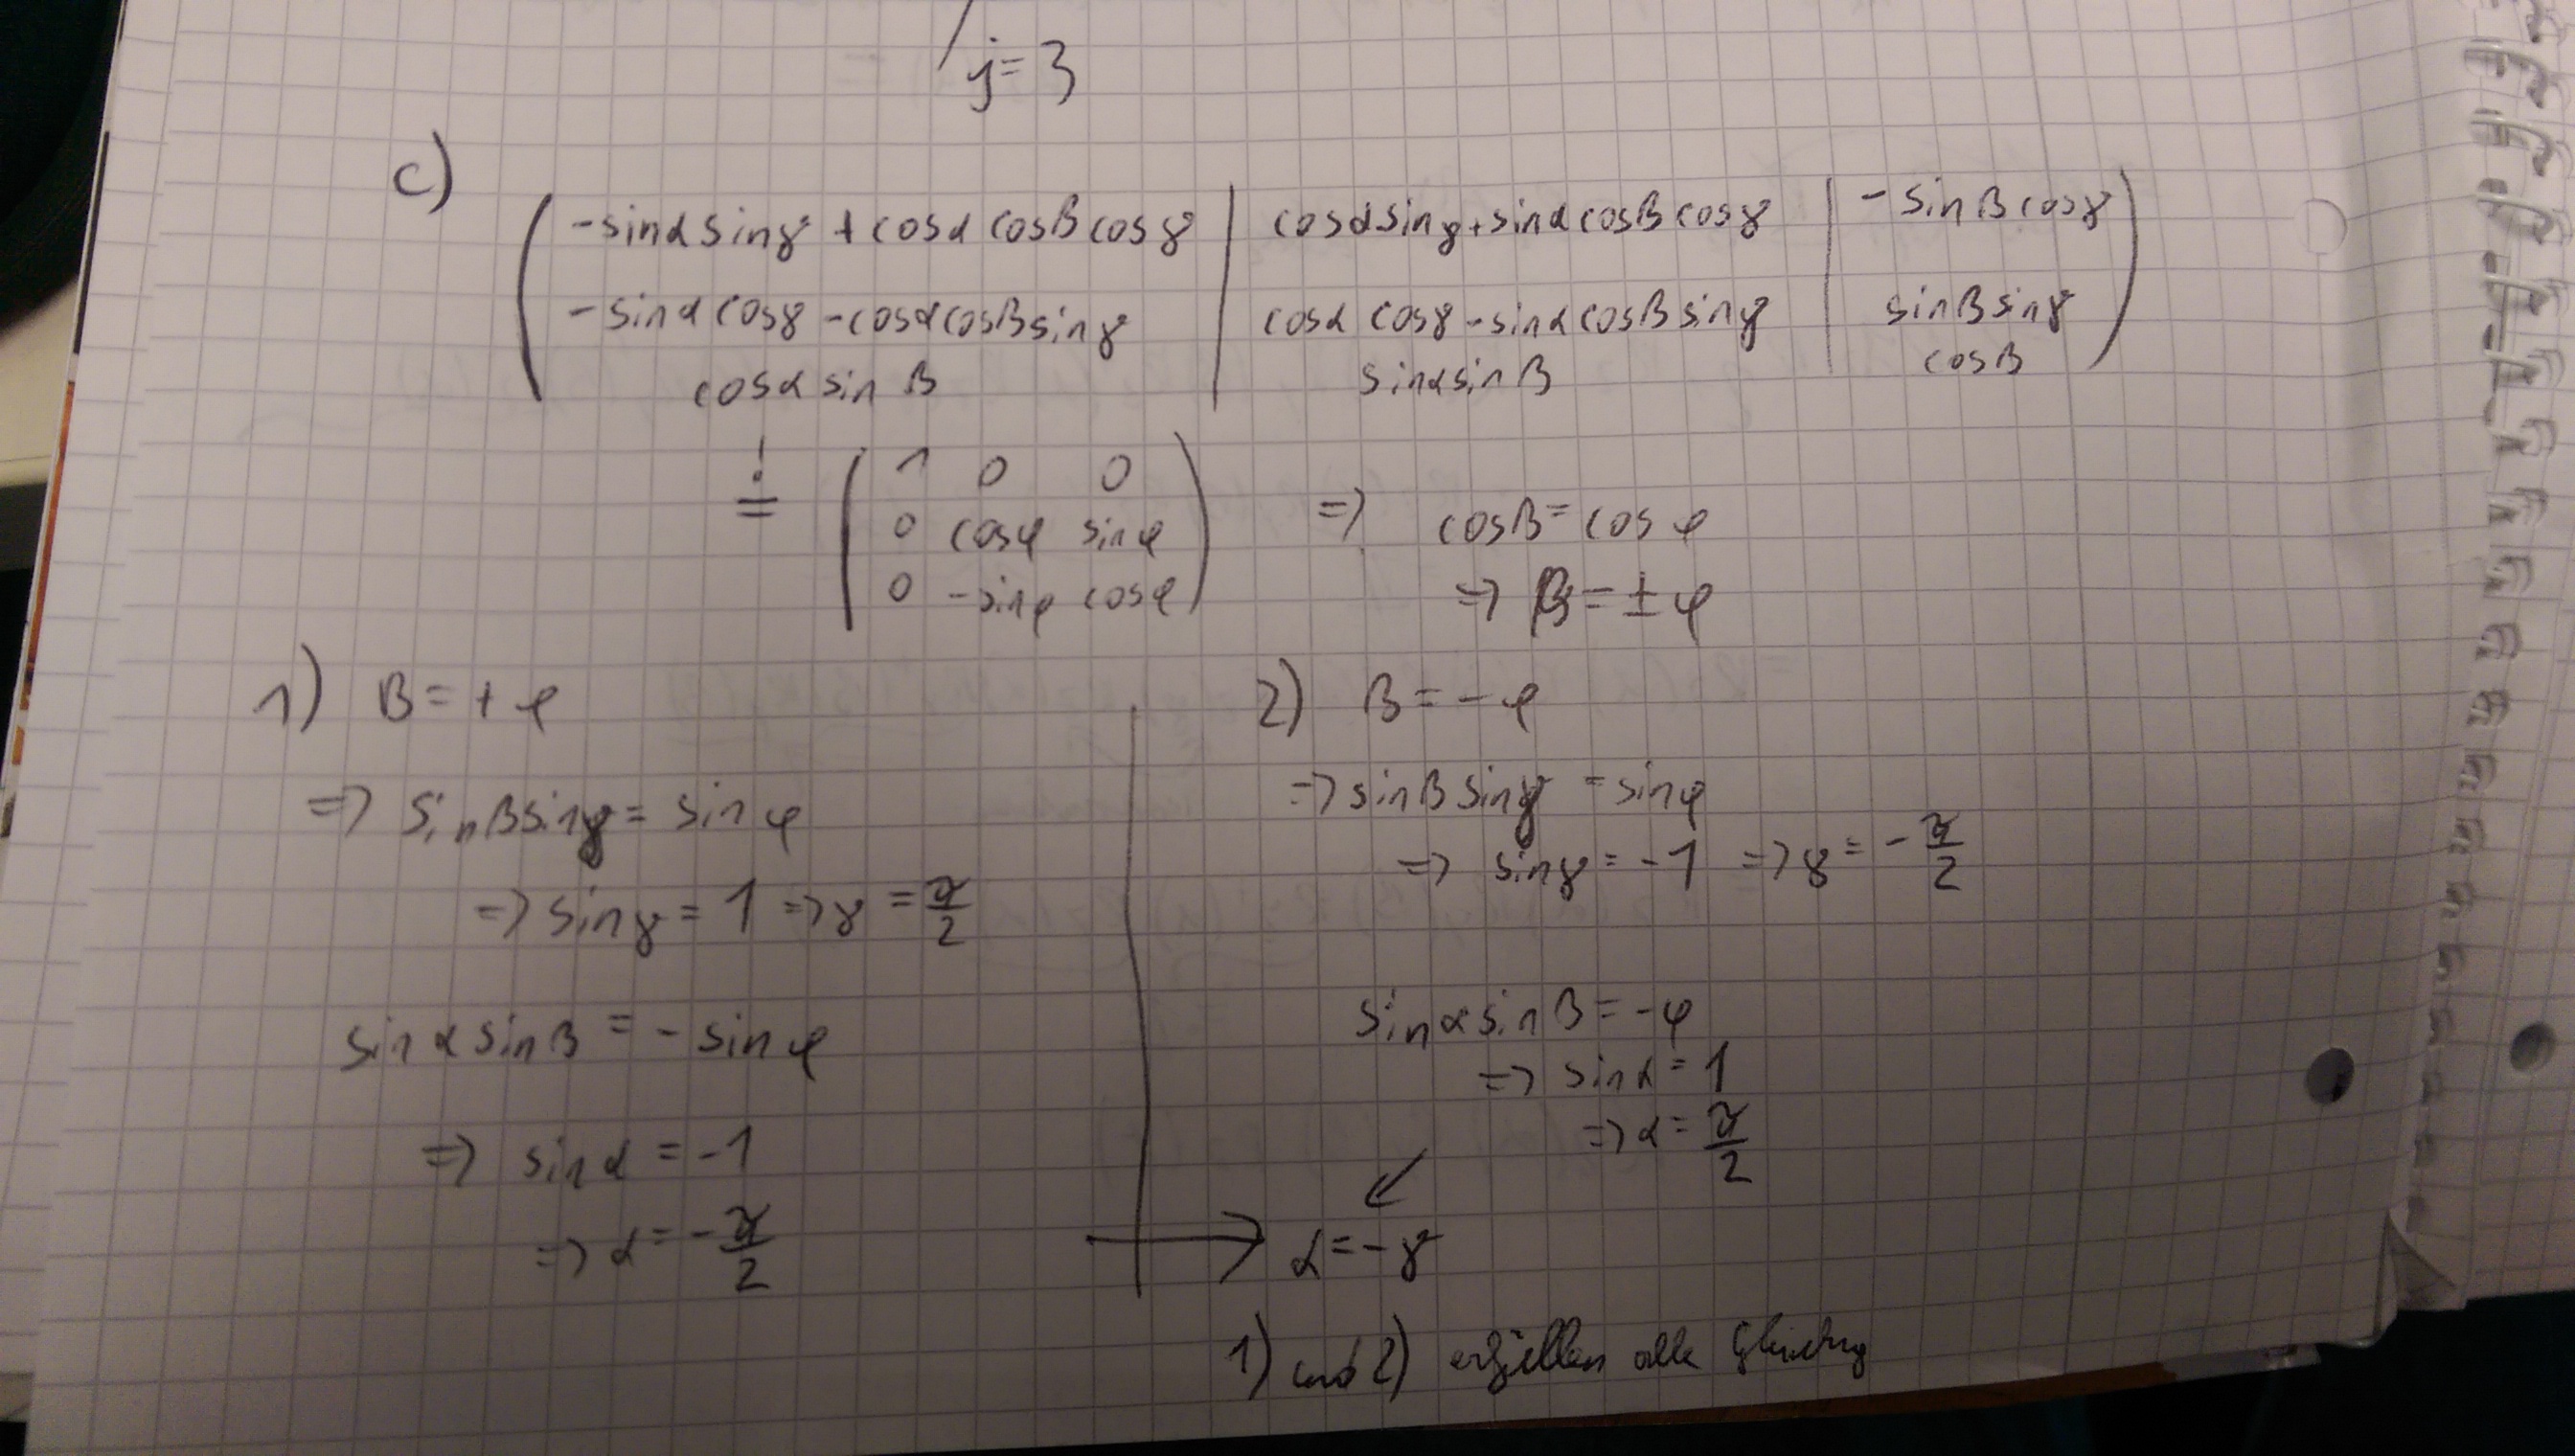 j=3
c)
-sinα sinγ + cosα cosβ cosγ | cosα sinγ + sinα cosβ cosγ | -sinβ cosγ
-sinα cosγ - cosα cosβ sinγ | cosα cosγ - sinα cosβ sinγ | sinβ sinγ
cosα sinβ | sinα sinβ | cosβ
!
=
1 0 0
0 cosφ sinφ
0 -sinφ cosφ
=> cosβ = cosφ
=> β = ±φ
1) β = +φ
=> sinβ sinγ = sinφ
=> sinγ = 1 => γ = π/2
sinα sinβ = -sinφ
=> sinα = -1
=> α = -π/2
2) β = -φ
=> sinβ sinγ = sinφ
=> sinγ = -1 => γ = -π/2
sinα sinβ = -φ
=> sinα = 1
=> α = π/2
→ α = -γ
1) und 2) erfüllen alle Gleichung